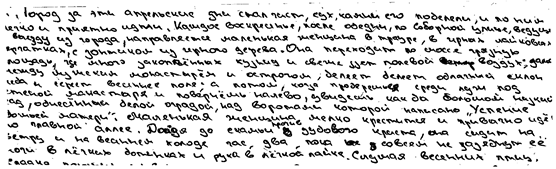 , Город за эти апрельские дни стал чист, сух, камни его побелели, и по ним
легко и приятно идти. Каждое воскресенье, после обедни, по Соборной улице, ведущей
к выезду из города, направляется маленькая женщина в трауре, в чёрных лайковых
перчатках, с зонтиком из чёрного дерева. Она переходит по шоссе грязную
площадь, где много закопчённых кузниц и свежо дует полевой воздух; далее
между мужским монастырём и острогом, белеет облачный склон
неба и сереет весеннее поле, а потом, когда проберёшься среди луж под
стеной монастыря и повернёшь налево, увидишь как бы большой низкий
сад, обнесённый белой оградой, над воротами которой написано „Успение
Божией матери". Маленькая женщина мелко крестится и привычно идёт
по главной аллее. Дойдя до скамьи против дубового креста, она сидит на
ветру и на весеннем холоде час, два, пока совсем не зазябнут её
ноги в лёгких ботинках и рука в лёгкой лайке. Слушая весенних птиц,